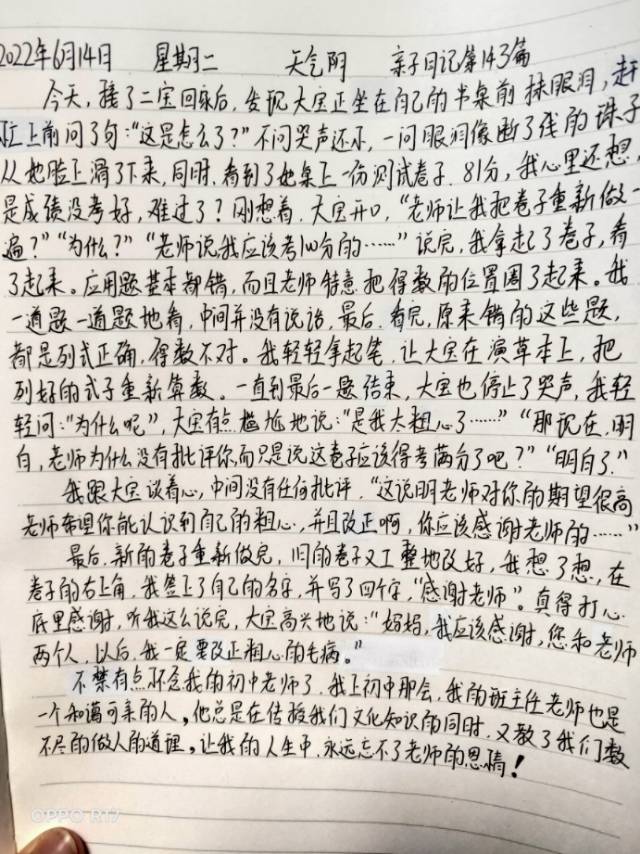 2022年6月14日 星期二 天气阴 亲子日记第143篇
今天，接了二宝回来后，发现大宝正坐在自己的书桌前抹眼泪，赶
忙上前问了句：“这是怎么了？”不问哭声还小，一问眼泪像断了线的珠子
从她脸上滑了下来，同时，看到了她桌上一份测试卷子，81分，我心里还想，
是成绩没考好，难过了？刚想着，大宝开口，“老师让我把卷子重新做一
遍？”“为什么？”“老师说，我应该考100分的……”说完，我拿起了卷子，看
了起来。应用题基本都错，而且老师特意把得数的位置圈了起来。我
一道题一道题地看，中间并没有说话，最后，看完，原来错的这些题，
都是列式正确，得数不对。我轻轻拿起笔，让大宝在演草本上，把
列好的式子重新算数。一直到最后一题结束，大宝也停止了哭声，我轻
轻问：“为什么呢”，大宝有点尴尬地说：“是我太粗心了……”“那现在，明
白，老师为什么没有批评你，而只是说这卷子应该得考满分了吧？”“明白了。”
我跟大宝谈着心，中间没有任何批评，“这说明老师对你的期望很高
老师希望你能认识到自己的粗心，并且改正啊，你应该感谢老师的……”
最后，新的卷子重新做完，旧的卷子又工整地改好，我想了想，在
卷子的右上角，我签上了自己的名字，并写了四个字，“感谢老师”。真得打心
底里感谢，听我这么说完，大宝高兴地说：“妈妈，我应该感谢，您和老师
两个人，以后，我一定要改正粗心的毛病。”
不禁有点怀念我的初中老师了，我上初中那会，我的班主任老师也是
一个和蔼可亲的人，他总是在传授我们文化知识的同时，又教了我们数
不尽的做人的道理，让我的人生中，永远忘不了老师的恩情！
OPPO R17